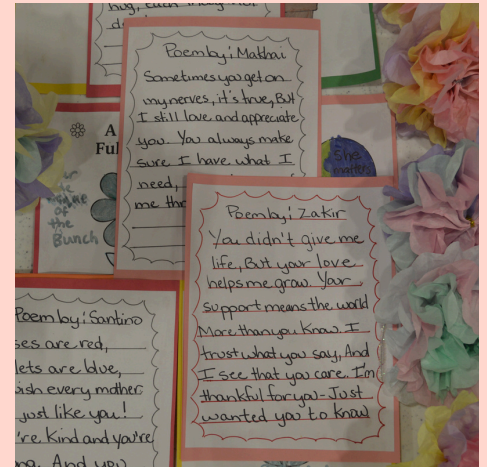 hug,
Poem by: Makhai
Sometimes you get on
my nerves, it's true, But
I still love and appreciate
you. You always make
sure I have what I
need,
me
A
Ful
of
the
Bunch
She
matters
Poem by: Zakir
You didn't give me
life, But your love
helps me grow. Your
support means the world
More than you know. I
trust what you say, And
I see that you care. I'm
thankful for you-Just
wanted you to know
Poem by: Santino
are red,
are blue,
every mother
just like you!
're kind and you're
And you